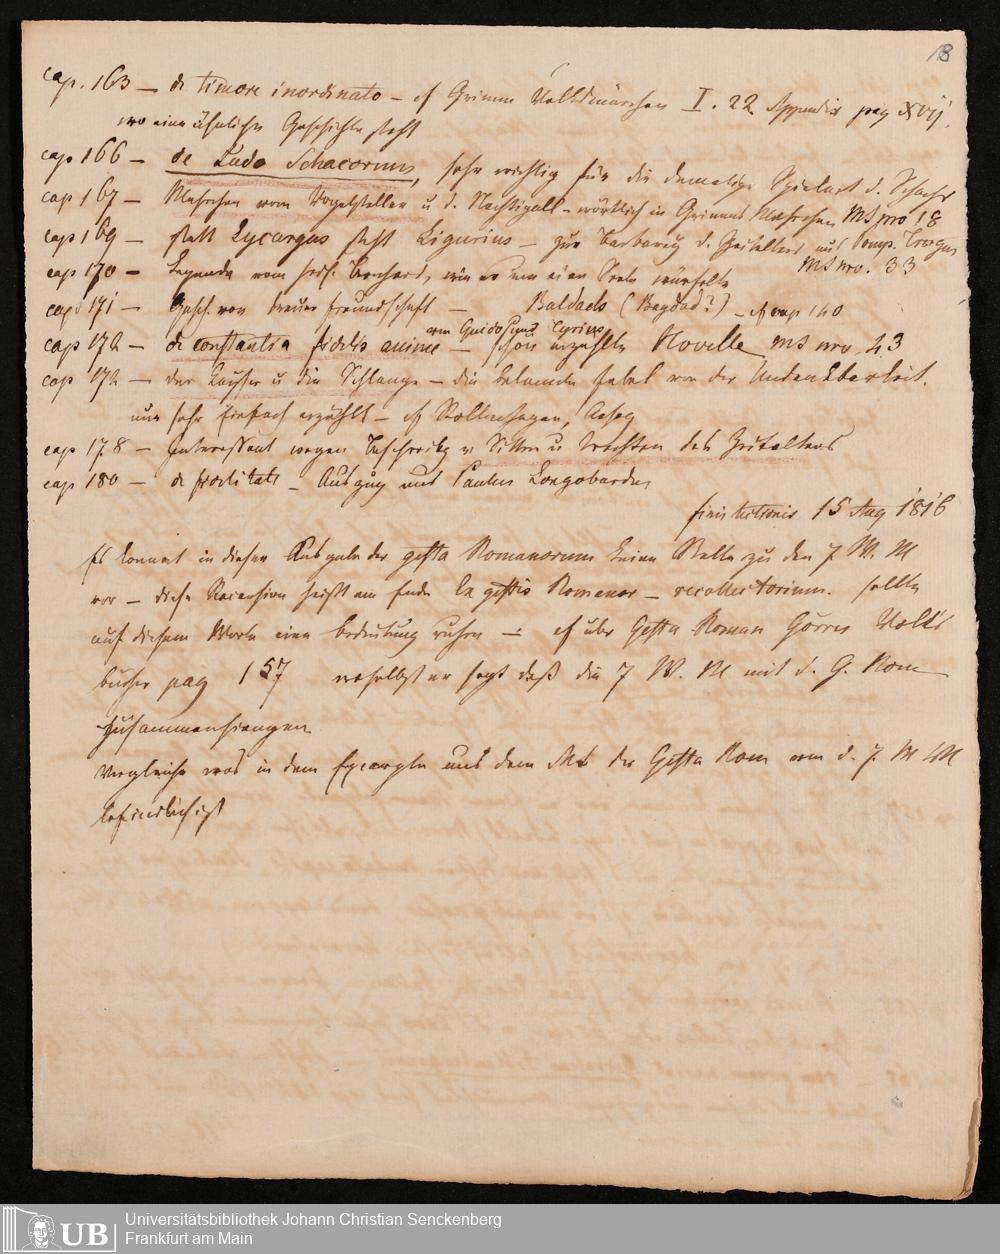 18
cap. 163 – de timore inordinato – cf Grimm Volksmärchen I. 22 Appendix pag XVij.
wo eine ähnliche Geschichte steht
cap 166 – de Ludo Schacorum, sehr wichtig für die damalige Spielart d. Schachs
cap 167 – Mährchen vom Vogelsteller u d. Nachtigall – wörtlich in Grimms Mährchen MS nro 18
cap 169 – statt Lycurgus steht Ligurius – zur d. Zeitalters aus Pomp. Trogus
cap 170 – Legende vom heil. Bernhard, wie er um eine Seele würfelte MS nro. 33
cap 171 – Gesch. von treuer Freundschaft – Baldach (Bagdad?) – cf cap 140
von Guido Tyrius
cap 172 – de constantia fidelis animae – schön erzählte Novelle MS nro 43
cap 174 – der Kaiser u die Schlange – die bekannte Fabel von der Undankbarkeit.
nur sehr einfach erzählt – cf Rollenhagen, Aesop
cap 178 – Interessant wegen Beschreibg v Sitten u Trachten des Zeitalters
cap 180 – de fidelitate – Auszug aus Paulus Longobardus
finis lectionis 15 Aug 1816
Es kommt in dieser Ausgabe der gesta Romanorum keine Stelle zu den 7 W. M
vor – diese Recension heißt am Ende Ex gestis Romanor – recollectorium. sollte
auf diesem Worte eine Bedeutung ruhen – cf über Gesta Roman Görres Volks
bücher pag 157 woselbst er sagt daß die 7 W. M mit d. G. Rom
zusammenhangen
Vergleiche was in dem Excerpte aus dem Ms der Gesta Rom von d. 7. W M
befindlich ist
UB
Universitätsbibliothek Johann Christian Senckenberg
Frankfurt am Main